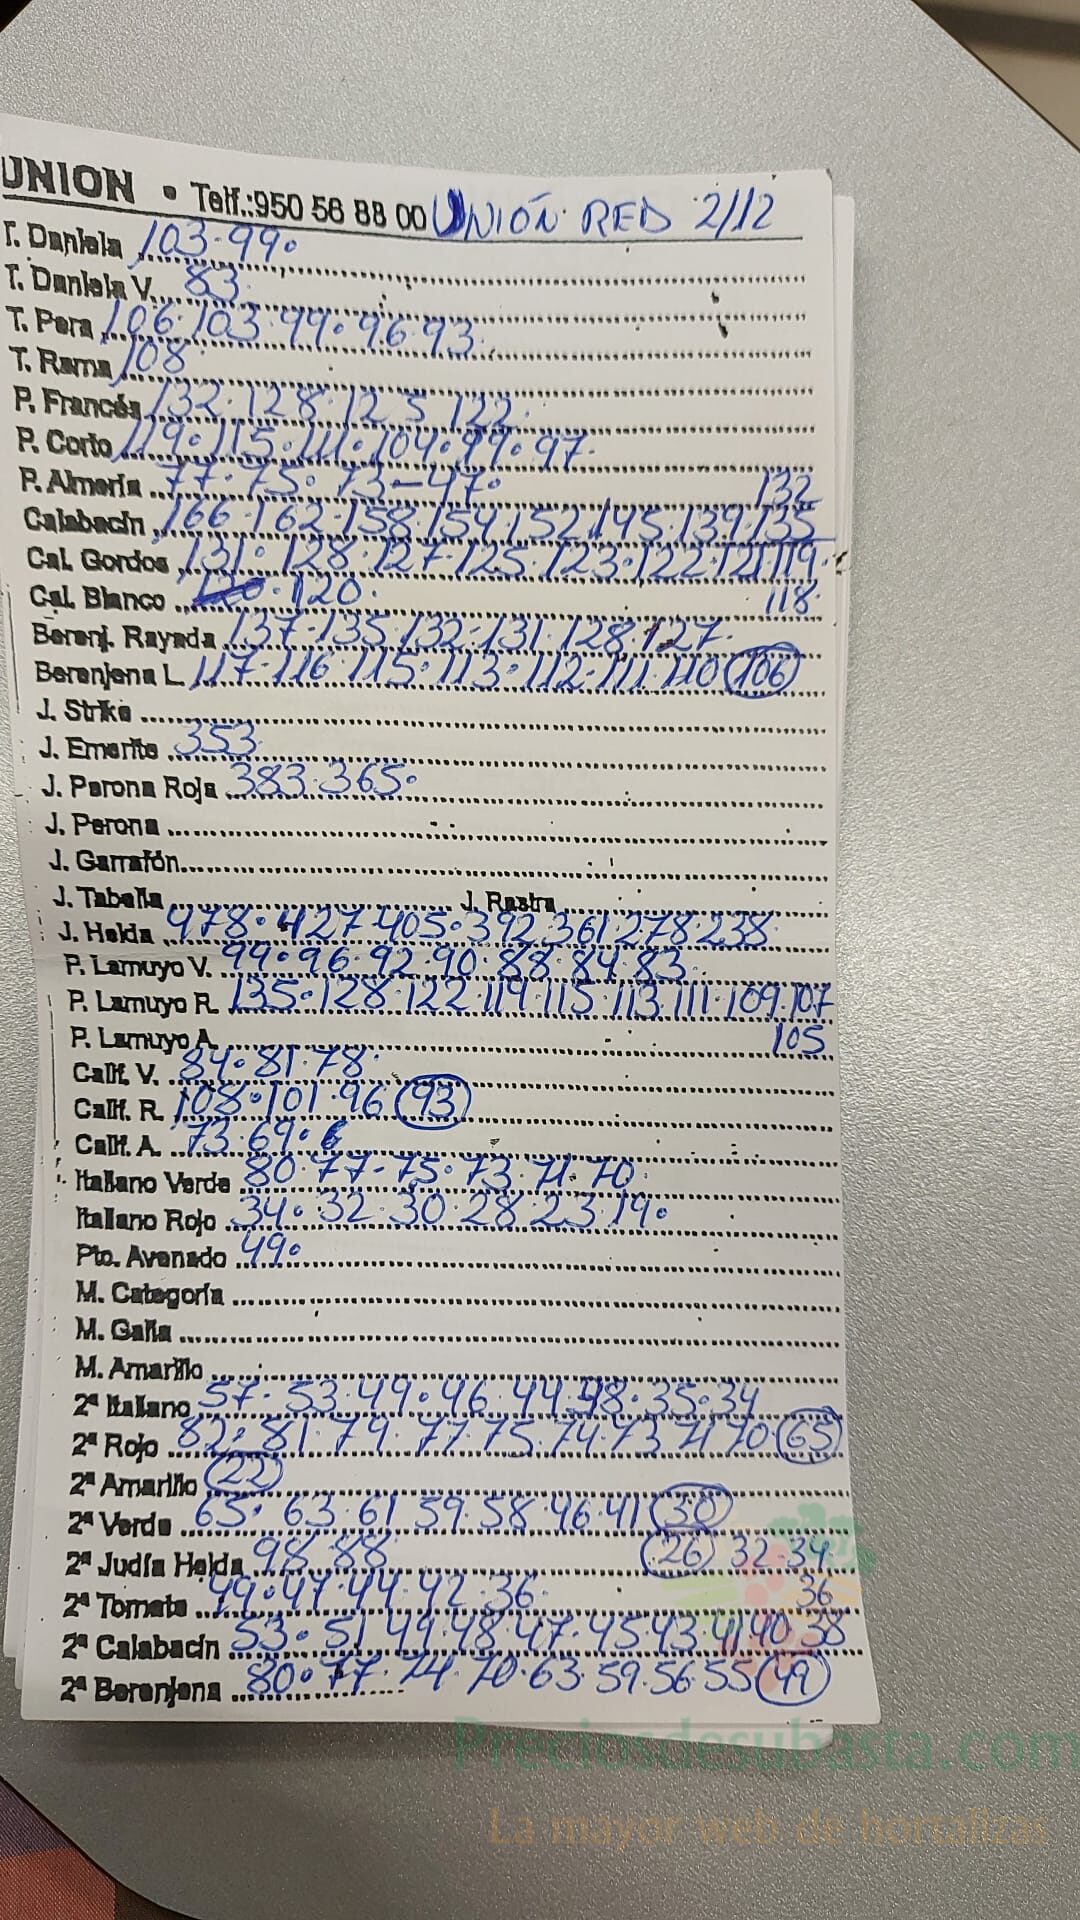 UNION • Telf.:950 56 88 00 UNIÓN RED 2/12
T. Daniela 103·99·
T. Daniela V. 83
T. Pera 106·103·99·96·93
T. Rama 108
P. Francés 132·128·125·122
P. Corto 119·115·111·104·99·97·
P. Almería 77·75·73-47· 132
Calabacín 166·162·158·154·152·145·139·135
Cal. Gordos 131·128·127·125·123·122·121·119·
Cal. Blanco 120·120· 118·
Berenj. Rayada 137·135·132·131·128·127·
Berenjena L. 117·116·115·113·112·111·110 106
J. Strike
J. Emerite 353
J. Perona Roja 383·365·
J. Perona
J. Garrafón
J. Tabella J. Rastra
J. Helda 478·427·405·392·361·278·238
P. Lamuyo V. 99·96·92·90·88·84·83
P. Lamuyo R. 135·128·122·119·115·113·111·109·107
P. Lamuyo A. 105
Calif. V. 84·81·78
Calif. R. 108·101·96 93
Calif. A. 73·69·
Italiano Verde 80·77·75·73·71·70·
Italiano Rojo 34·32·30·28·23·19·
Pto. Avenado 49·
M. Categoría
M. Galia
M. Amarillo
2ª Italiano 57·53·49·46·44· ·35·34
2ª Rojo 82·81·79·77·75·74·73·71·70· 65
2ª Amarillo 22
2ª Verde 65·63·61·59·58·46·41 30
2ª Judía Helda 98·88 26 32·34
2ª Tomate 49·47·44·42·36· 36
2ª Calabacín 53·51·49·48·47·45·43·41·40·38
2ª Berenjena 80·77·74·70·63·59·56·55 49
Preciosdesubasta.com
La mayor web de hortalizas